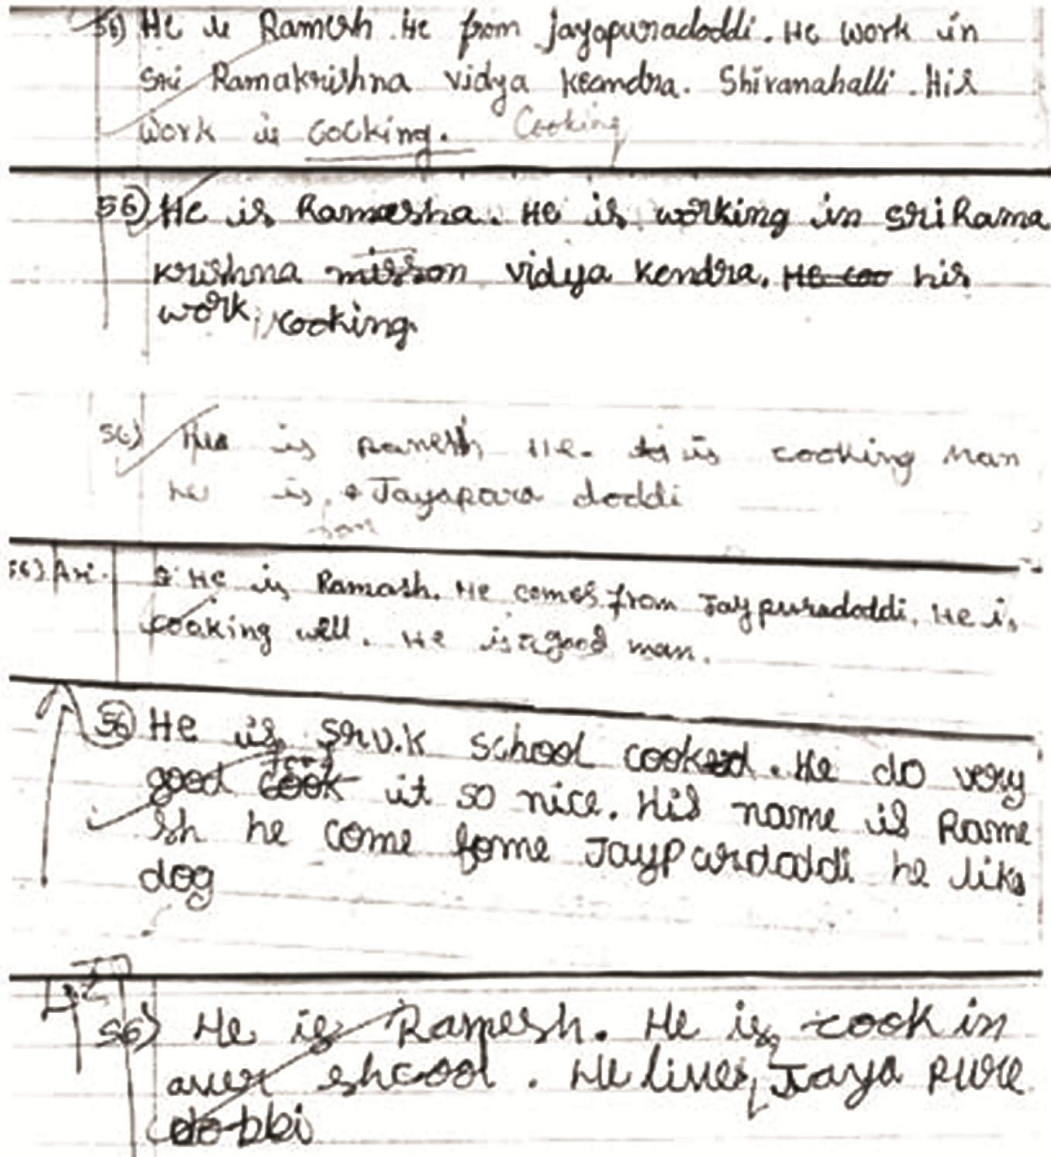 56) He is Ramesh. He from Jayapuradoddi. He work in
Sri Ramakrishna vidya keandra. Shivanahalli. His
work is cocking. Cooking
56) He is Ramesha. He is working in sri Rama
krishna mission vidya kendra. He coo his
work, cooking.
56) is Ramesh He. is cooking man
he is Jayapura doddi
from
56) Ans. He is Ramash. He comes from Jaypuradoddi. He is
cooking well. He is a good man.
56 He is srv.k school cooked. He do very
food
good cook it so nice. His name is Rame
sh he come fome Jaypurdoddi he like
dog
56) He is Ramesh. He is cook in
awer shcool. He lives Jaya pure
dobbi